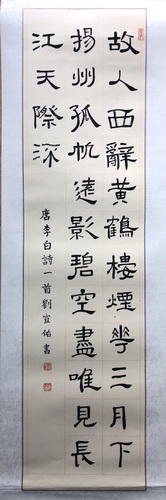 故人西辭黃鶴樓煙花三月下
揚州孤帆遠影碧空盡唯見長
江天際流
唐李白詩一首劉宣佑書